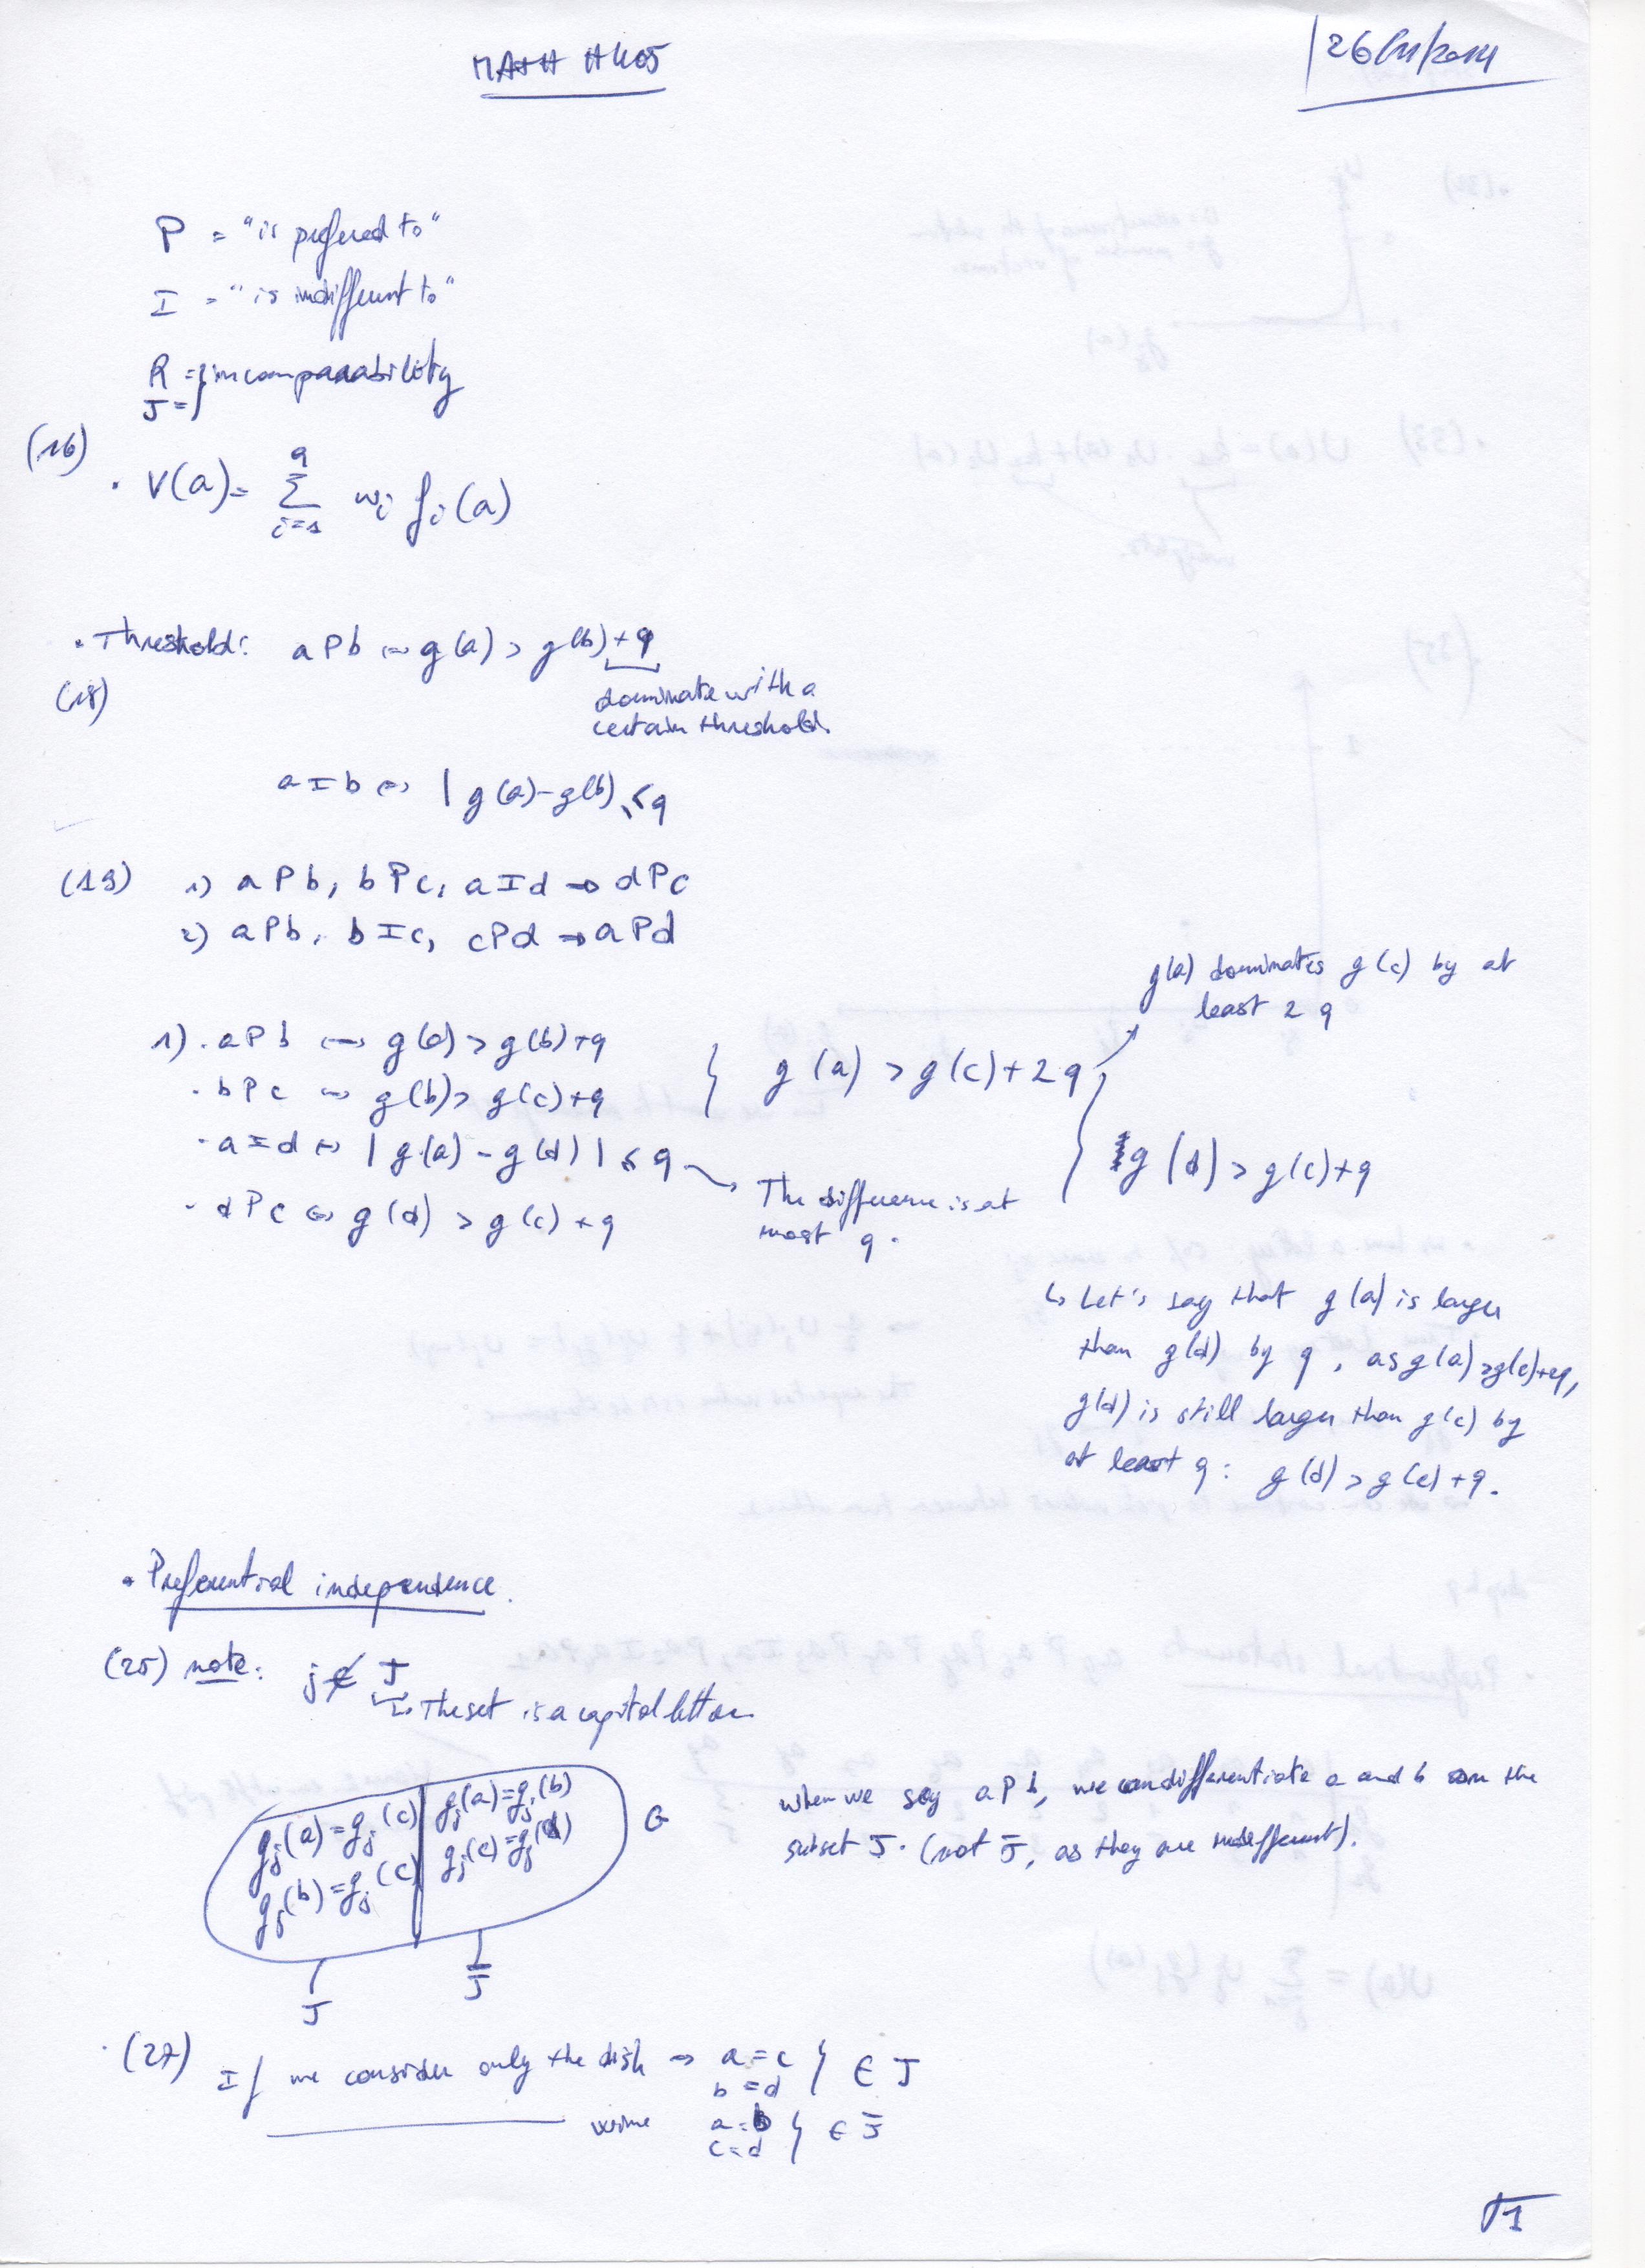 MATH H405
26/11/2014
P = "is prefered to"
I = "is indifferent to"
R = } incomparability
J = }
(16)
· V(a) = Σ_{i=1}^{q} wi fi(a)
· Threshold: a P b ↔ g(a) > g(b) + q
(18)
dominate with a
certain threshold.
a I b ↔ | g(a) - g(b) ≤ q
(19) 1) a P b, b P c, a I d → d P c
2) a P b, b I c, c P d → a P d
g(a) dominates g(c) by at
least 2 q
1) · a P b ↔ g(a) > g(b) + q
· b P c ↔ g(b) > g(c) + q
} g(a) > g(c) + 2q
· a I d ↔ | g(a) - g(d) | ≤ q
The difference is at
most q.
} g(d) > g(c) + q
· d P c ↔ g(d) > g(c) + q
↳ Let's say that g(a) is larger
than g(d) by q, as g(a) > g(c) + 2q,
g(d) is still larger than g(c) by
at least q : g(d) > g(c) + q.
· Preferential independence.
(25) note: j ∉ J
↳ The set is a capital letter
gj(a) = gj(c) gj(a) = gj(b)
gj(b) = gj(c) gj(c) = gj(d)
G
J
J̄
when we say a P b, we can differentiate a and b on the
subset J. (not J̄, as they are indifferent).
· (27) If we consider only the dish → a = c } ∈ J
b = d
wine a = b } ∈ J̄
c = d
1